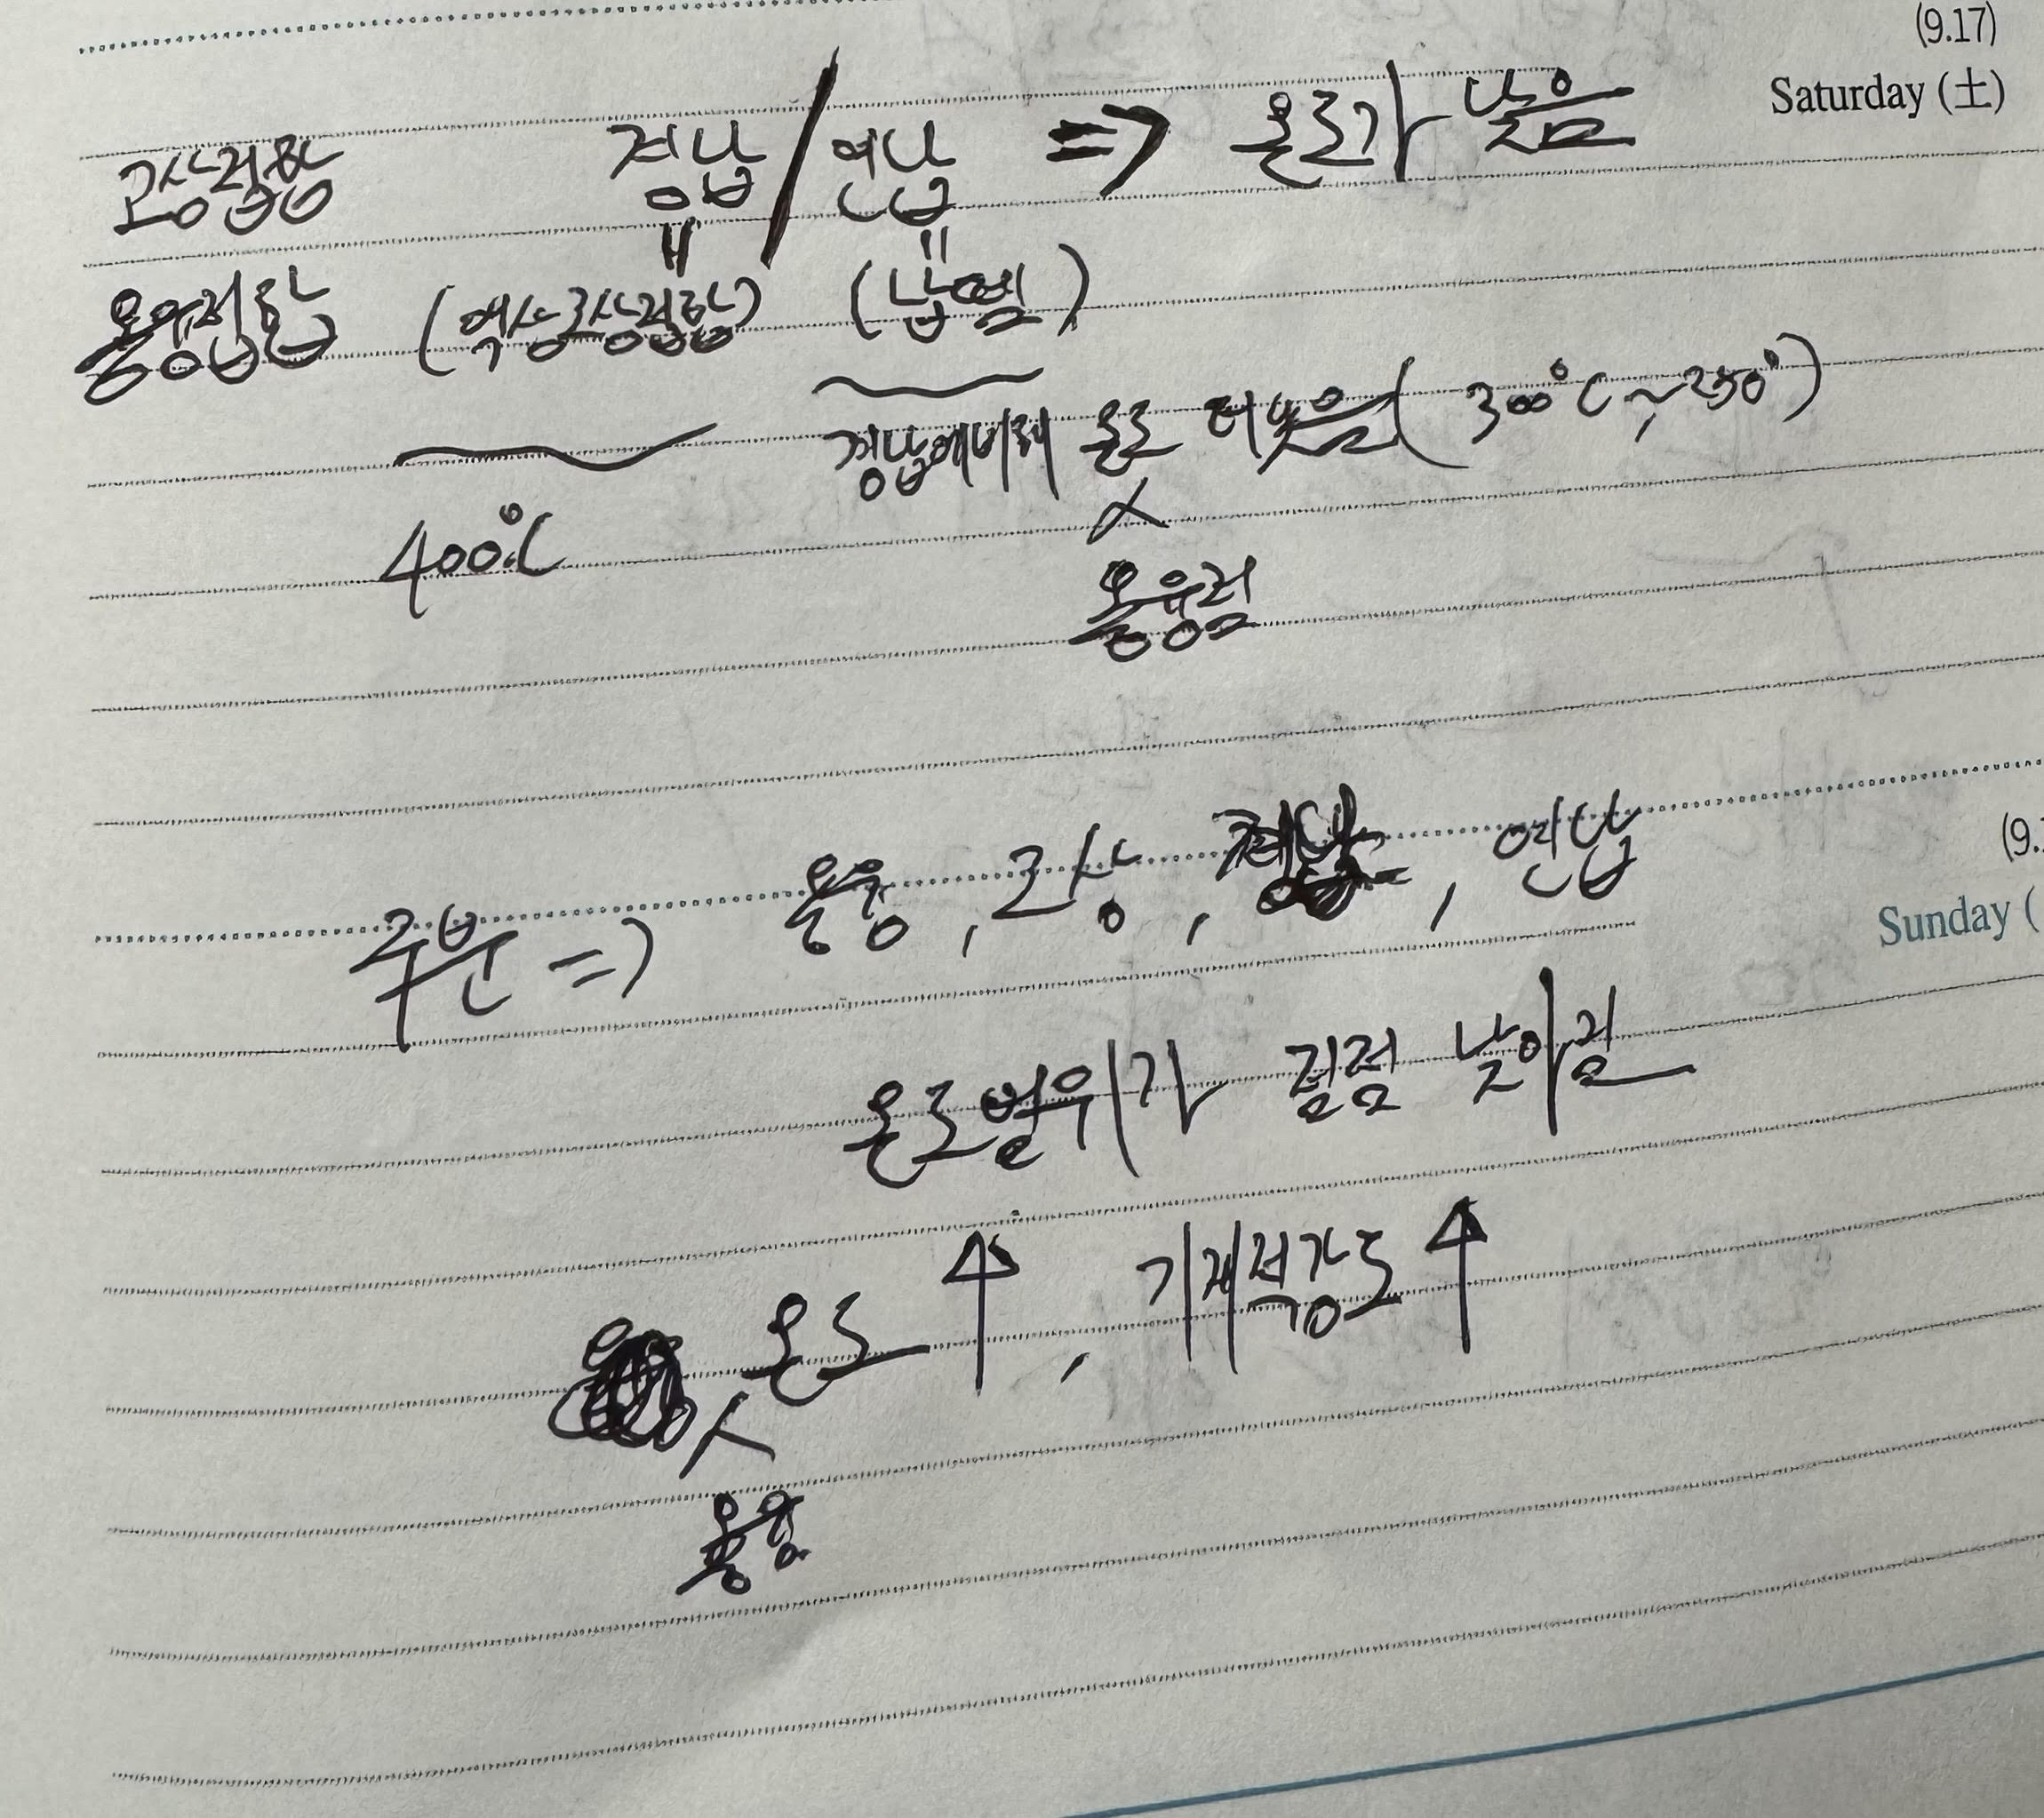 (9.17)
Saturday (土)
고상접합 경납/연납 => 온도가 낮음
용융접합 (액상고상접합) (납땜)
경납에 비해 온도 더 낮음 (300°C ~ 250°)
400°C
용융점
(9.
구분 => 용융, 고상, , 연납
Sunday (
온도 범위가 점점 낮아짐
온도 ↑, 기계적강도 ↑
용융